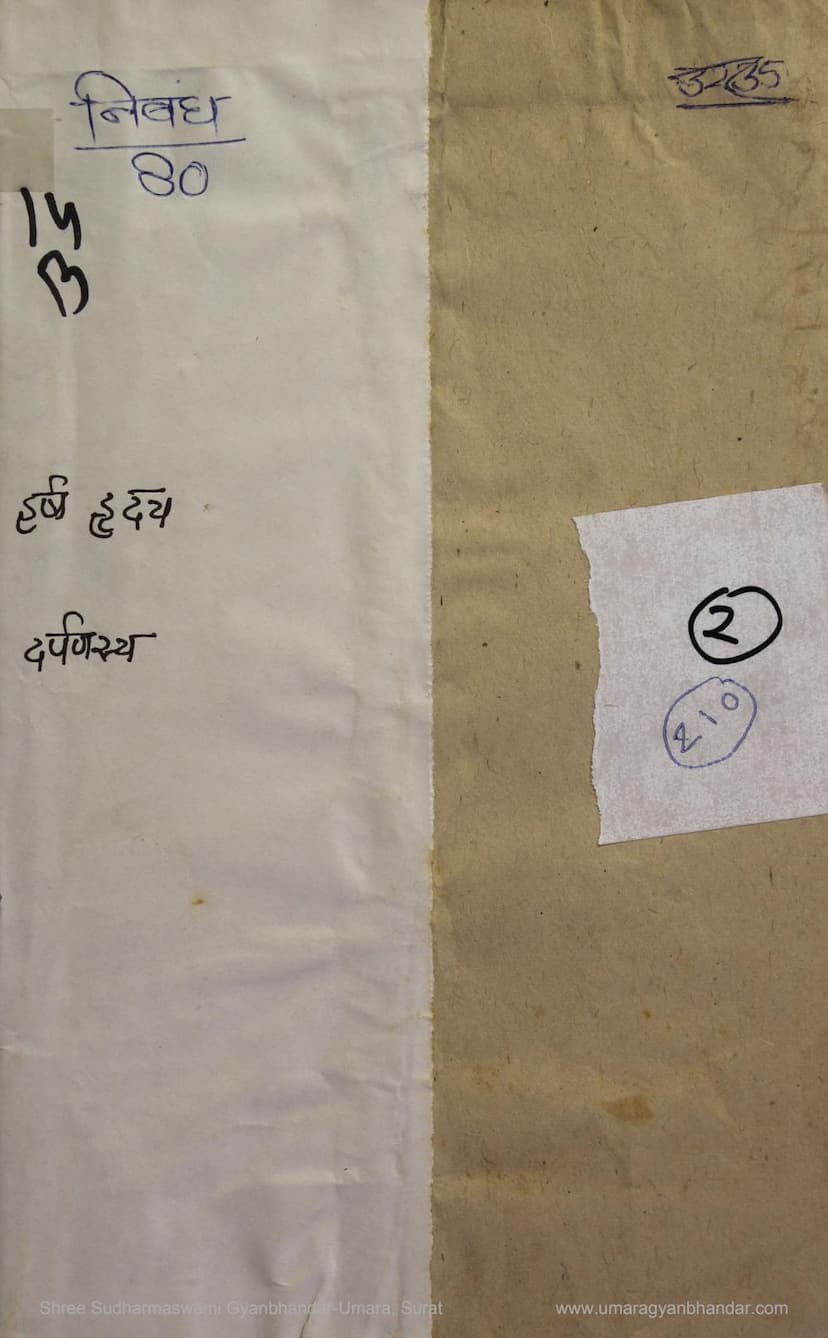 निबंध
80
हर्ष हृदय
दर्पणस्य
2
210
Shree Sudharmaswami Gyanbhandar-Umara, Surat
www.umaragyanbhandar.com